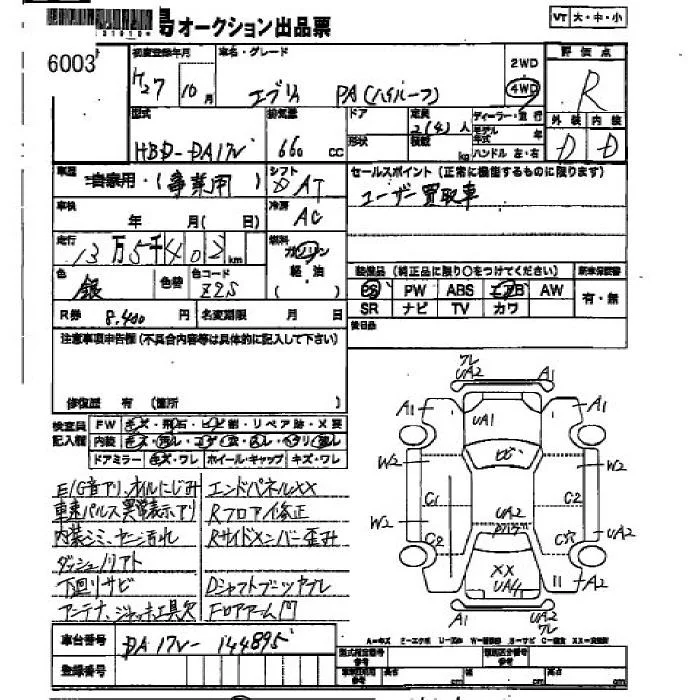 号 オークション出品票
VT 大・中・小
6003
初度登録年月 車名・グレード 2WD 評価点
H27 10月 エブリィ PA(ハイルーフ) 4WD R
型式 排気量 ドア 定員 2(4)人 ディーラー・並行 外装 内装
HBD-DA17V 660 CC 形状 積載 kg モデル年式 年 D D
ハンドル 左・右
車歴 自家用・(事業用) シフト DAT セールスポイント (正常に機能するものに限ります)
車検 年 月(日) 冷房 AC ユーザー買取車
走行 13万5千402km 燃料 ガソリン
軽油
色 銀 色替 色コード Z2S ( )
装備品 (純正品に限り○をつけてください) 新車保証書
PS PW ABS エアB AW 有・無
SR ナビ TV カワ
R券 8,400円 名変期限 月 日
後日品
注意事項申告欄(不具合内容等は具体的に記入して下さい)
修復歴 有 (箇所 )
検査員記入欄
FW キズ・飛石・ヒビ割・リペア跡・X要
内装
ドアミラー キズ・ワレ ホイール・キャップ キズ・ワレ
E/G音アリ、オイルにじみ エンドパネルXX
車速パルス異常表示アリ Rフロア修正
Rサイドメンバー歪み
下回リサビ Dシャフトブーツヤブレ
アンテナ、ジャッキ工具欠 Fロアアーム
ワレ
UA2 A1
A1 UA1 A1
W2 W2
C1 C2
W2 UA2 UA2
C2
XX
UA4 A2
A1 UA2
ワレ
車台番号 DA17V-144895
登録番号
型式指定番号 参考 類別区分番号 参考
長さ cm 幅 cm 高さ cm